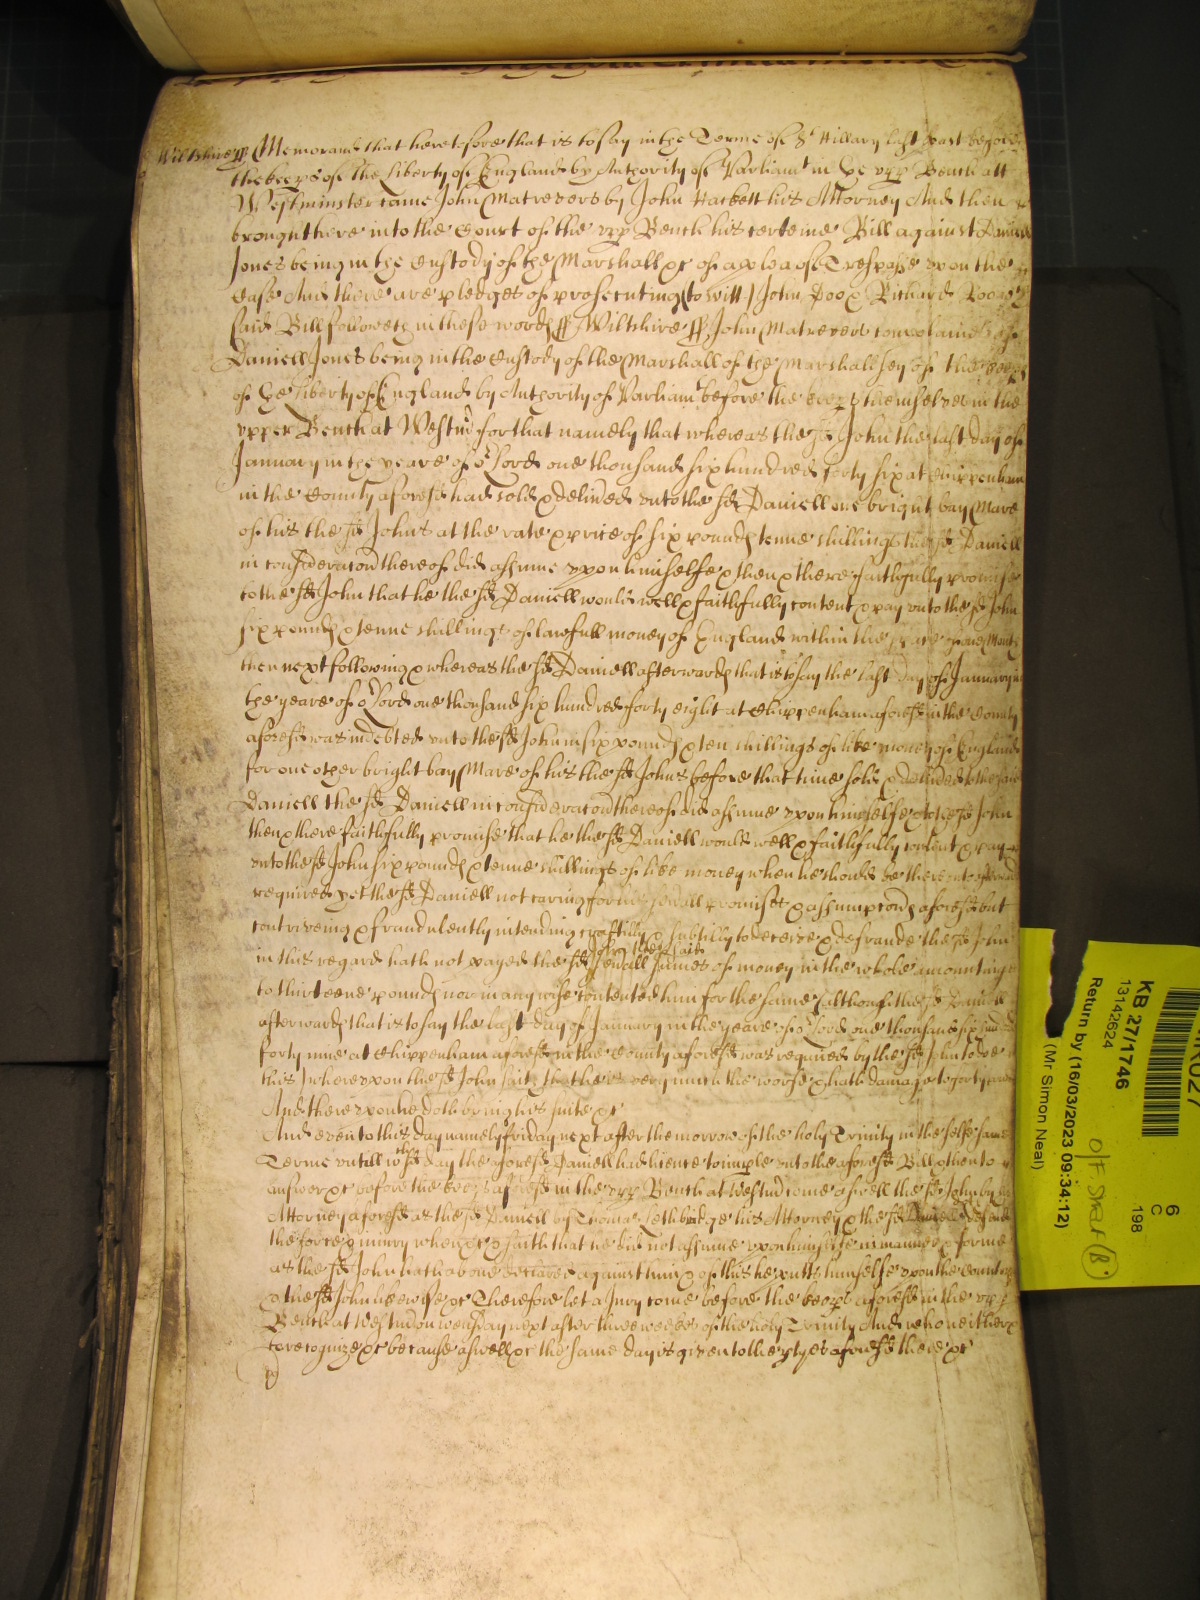 Wiltshire ss Memorand that heretofore that is to say in the Terme of St Hillary last past before
the keeps of the Liberty of England by Authority of Parliamt in the upp Bench att
Westminster came John Matrevers by John Hackett his Attorney And then
brought here into the Court of the upp Bench his certeine Bill against Daniell
Jones being in the Custody of the Marshall &c of a plea of Trespasse upon the
Case And there are pledges of prosecuting (to witt) John Doo & Richard Roo
said Bill followeth in these words ss Wiltshire ss John Matrevers complaineth of
Daniell Jones being in the Custody of the Marshall of the Marshallsey of the keeps
of the Liberty of England by Authority of Parliamt before the keeps themselves in the
upper Bench at Westmr for that namely that whereas the sd John the last day of
January in the yeare of or Lord one thousand six hundred forty six at Chippenham
in the County aforesd had sold & delivered unto the sd Daniell one bright bay Mare
of his the sd Johns at the rate & price of six pounds & tenne shillings the sd Daniell
in consideracon thereof did assume upon himselfe & then & there faithfully promise
to the sd John that he the sd Daniell would well & faithfully content & pay unto the sd John
six pounds & tenne shillings of lawfull money of England within the space of one Month
then next following & whereas the sd Daniell afterwards that is to say the last day of January in
the yeare of or Lord one thousand six hundred forty eight at Chippenham aforesd in the County
aforesd was indebted unto the sd John in six pounds & ten shillings of like money of England
for one other bright bay Mare of his the sd Johns before that time sold & delivered to the said
Daniell the sd Daniell in consideracon thereof did assume upon himselfe & to the sd John
then & there faithfully promise that he the sd Daniell would well & faithfully content & pay
unto the sd John six pounds & tenne shillings of like money when he should be thereunto afterwards
required yet the sd Daniell not careing for his severall promises & assumpcons aforesd but
contriveing & fraudulently intending craftilly & subtilly to deceive & defraude the sd John
in this regard hath not payed the sd John the said severall summes of money in the whole amounting
to thirteene pounds nor in any wise contented him for the same (although the sd Daniell
afterwards that is to say the last day of January in the yeare of or Lord one thousand six hundred
forty nine at Chippenham aforesd in the County aforesd was required by the sd John to doe
this) whereupon the sd John saith that he is very much the worse & hath damage to forty pounds
And thereupon he doth bring his suite &c
And even to this day namely friday next after the morrow of the holy Trinity in the selfe same
Terme untill wch day the aforesd Daniell had licence to imple unto the aforesd Bill & then to
answer &c before the keeps aforesd in the upp Bench at Westmr come aswell the sd John by his
Attorney aforesd as the sd Daniell by Thomas Lethbridge his Attorney & the sd Daniell defends
the force & iniury when &c & saith that he did not assume upon himselfe in manner & forme
as the sd John hath above declared against him & of this he putts himselfe upon the Countrey
& the sd John likewise &c Therefore let a Jury come before the keeps aforesd in the upp
Bench at Westmr on wensday next after three weekes of the holy Trinity And who neither &c
to recognize &c because aswell &c the same day is given to the ptyes aforesd there &c
KB 27/1746
13142624
Return by (16/03/2023 09:34:12)
(Mr Simon Neal)
6
C
198
O/F Shelf B